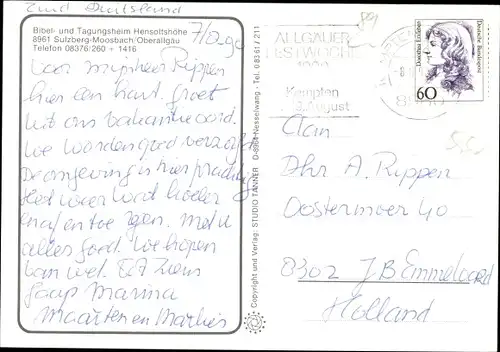 Zuid Duitsland
7/8 90
Bibel- und Tagungsheim Hensoltshöhe
8961 Sulzberg-Moosbach/Oberallgäu
Telefon 08376/260 + 1416
Voor mijnheer Rippen
hier een kaart groet
uit ons vakantieoord.
We worden goed verzorgd
De omgeving is hier prachtig
Het weer word koeler
en af en toe regen. Met u
alles goed. We hopen
van wel. Tot Ziens
Jaap Marina
Maarten en Marlies
Copyright und Verlag: STUDIO TANNER D-8964 Nesselwang · Tel. 08361/211
ALLGÄUER
FESTWOCHE
1990
Kempten
August
Dorothea Erxleben
Deutsche Bundespost
60
Aan
Dhr A. Rippen
Oostermoer 40
8302 JB Emmeloord
Holland